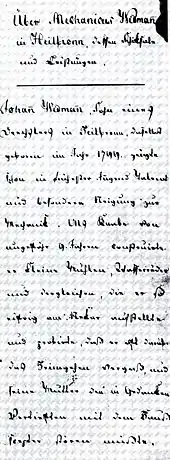 Über Mechanicus Widman
in Heilbronn, dessen Schicksale
und Leistungen.
Johan Widman, Sohn eines
Drechslers in Heilbronn, daselbst
geboren im Jahr 1799. zeigte
schon in frühester Jugend Talent
und besondere Neigung zur
Mechanik. Als Knabe von
ungefähr 9. Jahren construirte
er kleine Mühlen, Wasserräder
und dergleichen, die er so
eifrig am Neckar aufstellte
und probirte, daß er oft darüber
das Heimgehen vergaß, und
seine Mutter den in Gedanken
Vertieften mit dem
stören mußte.